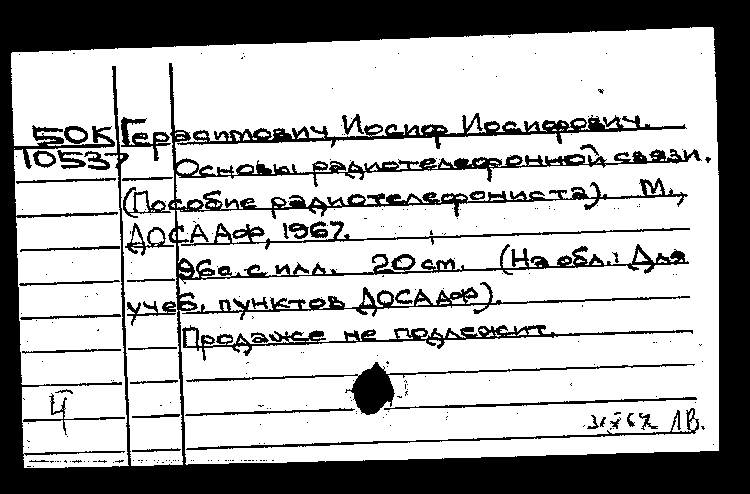 50К Герасимович, Иосиф Иосифович.
10537 Основы радиотелефонной связи.
(Пособие радиотелефониста). М.,
ДОСААФ, 1967.
96с. с илл. 20 cm. (На обл.: Для
учеб. пунктов ДОСААФ).
Продаже не подлежит.
Ч
ЛВ.